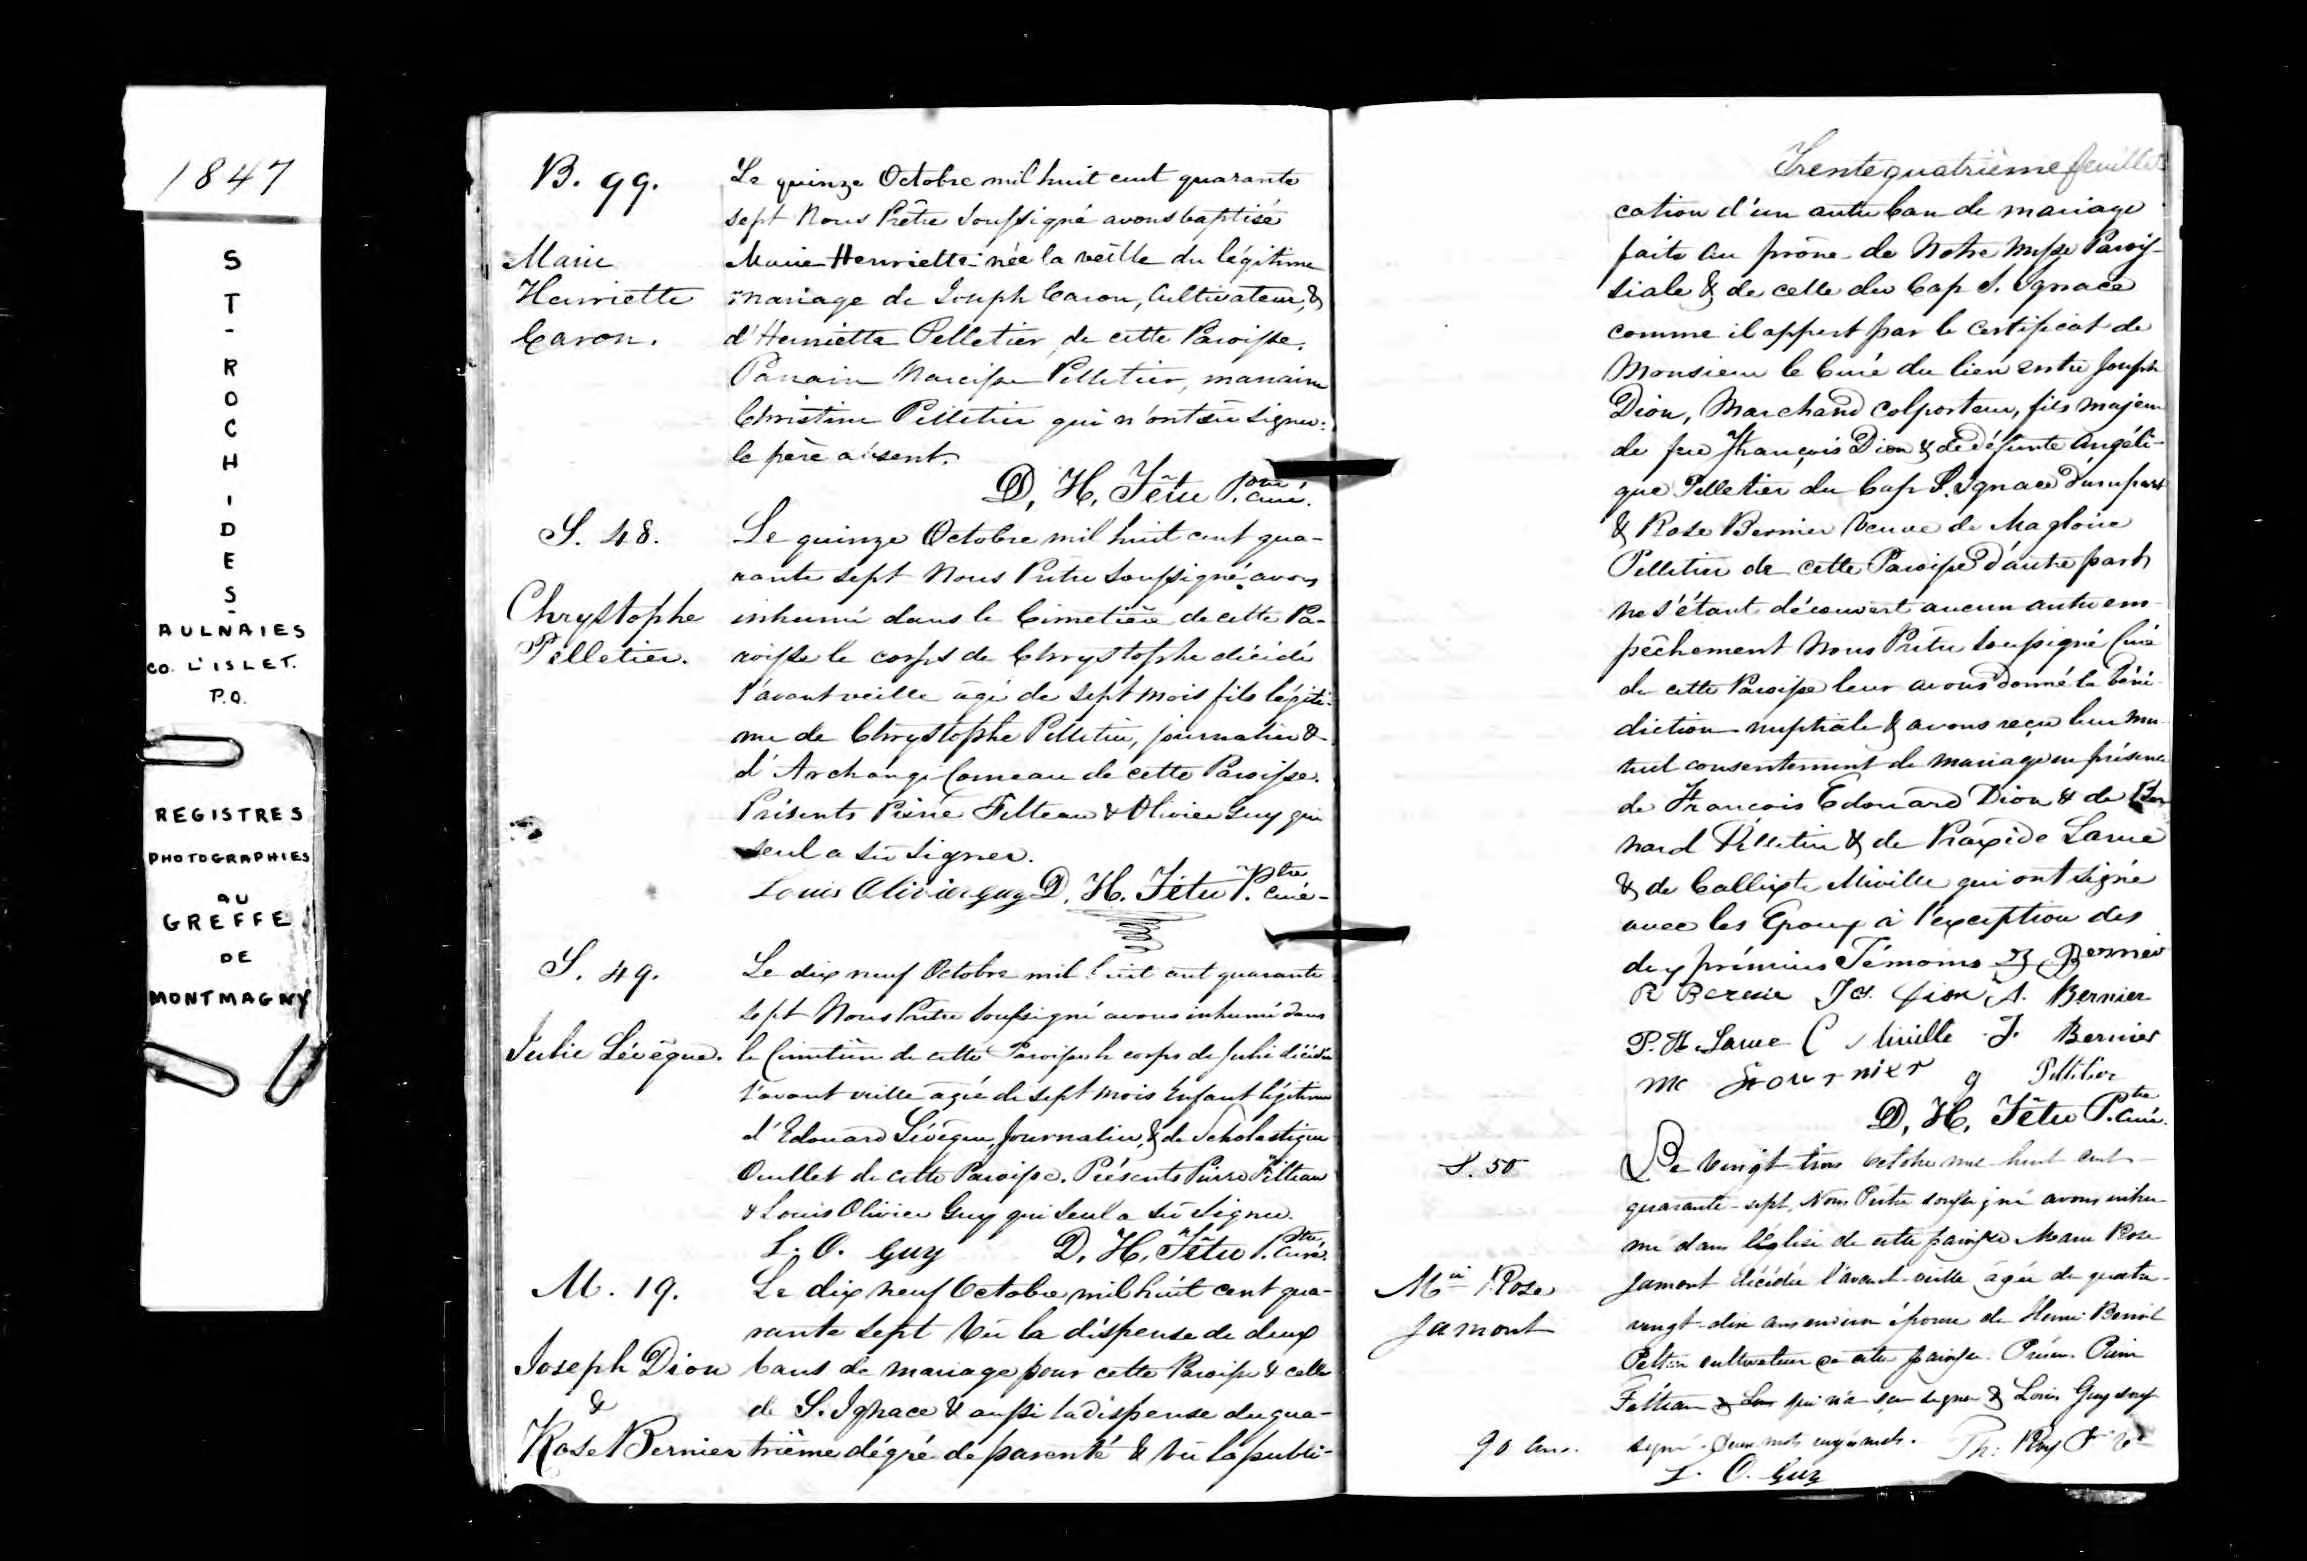 1847
ST-ROCH-DES-
AULNAIES
CO. L'ISLET.
P.Q.
REGISTRES
PHOTOGRAPHIES
AU
GREFFE
DE
MONTMAGNY
B. 99.
Marie
Henriette
Caron.
Le quinze Octobre mil huit cent quarante
sept Nous Prêtre soussigné avons baptisé
Marie Henriette née la veille du légitime
mariage de Joseph Caron, Cultivateur, &
d'Henriette Pelletier de cette Paroisse.
Parrain Narcisse Pelletier, marraine
Christine Pelletier qui n'ont su signer.
le père absent.
D, H, Têtu Ptre Curé.
S. 48.
Chrystophe
Pelletier.
Le quinze Octobre mil huit cent qua-
rante sept Nous Prêtre soussigné avons
inhumé dans le Cimetière de cette Pa-
roisse le corps de Chrystophe décédé
l'avant veille âgé de sept mois fils légiti-
me de Chrystophe Pelletier, journalier &
d'Archange Comeau de cette Paroisse.
Présents Pierre Filteau & Olivier Guy qui
seul a su signer.
Louis Olivier Guy D. H. Têtu Ptre. Curé-
S. 49.
Julie Lévêque.
Le dix neuf Octobre mil huit cent quarante
sept Nous Prêtre soussigné avons inhumé dans
le Cimetière de cette Paroisse le corps de Julie décédée
l'avant veille agée de sept mois Enfant légitime
d'Edouard Lévêque, Journalier, & de Scholastique
Ouellet de cette Paroisse. Présents Pierre Filteau
& Louis Olivier Guy qui seul a su signer.
L. O. Guy D. H, Têtu Ptre Curé.
M. 19.
Joseph Dion
&
Rose Bernier
Le dix neuf Octobre mil huit cent qua-
rante sept Vû la dispense de deux
bans de mariage pour cette Paroisse & celle
de S. Ignace & aussi la dispense du qua-
trième dégré de parenté & vû la publi-
Trente quatrième feuillet
cation d'un autre ban de mariage
faite au prône de Notre Messe Parois-
siale & de celle du Cap S. Ignace
comme il appert par le Certificat de
Monsieur le Curé du lieu entre Joseph
Dion, Marchand Colporteur, fils majeur
de feu François Dion & de défunte Angéli-
que Pelletier du Cap S. Ignace d'une part
& Rose Bernier Veuve de Magloire
Pelletier de cette Paroisse d'autre part
ne s'étant découvert aucun autre em-
pêchement Nous Prêtre soussigné Curé
de cette Paroisse leur avons donné la béné-
diction nuptiale & avons reçu leur mu-
tuel consentement de mariage en présence
de François Edouard Dion & de Ber
nard Pelletier & de Praxède Larue
& de Callixte Miville qui ont signé
avec les Epoux à l'exception des
deux premiers Témoins Bernier
R Bernier Jos. Dion A. Bernier
P. H. Larue C Miville J. Bernier
Mc Fournier g Pelletier
D, H, Têtu Ptre. Curé.
S. 50
Mie Rose
Jamont
90 ans.
Le vingt trois Octobre mil huit cent
quarante-sept, Nous Prêtre soussigné avons inhu-
mé dans l'église de cette paroisse Marie Rose
Jamont décédée l'avant-veille âgée de quatre-
vingt-dix ans environ épouse de Henri Benoit
Peltier cultivateur de cette paroisse. Présen. Pierre
Felteau & qui n'a su signer & Louis Guy
signé. Deux mots rayés nuls. Ph: Roy
L. O. Guy